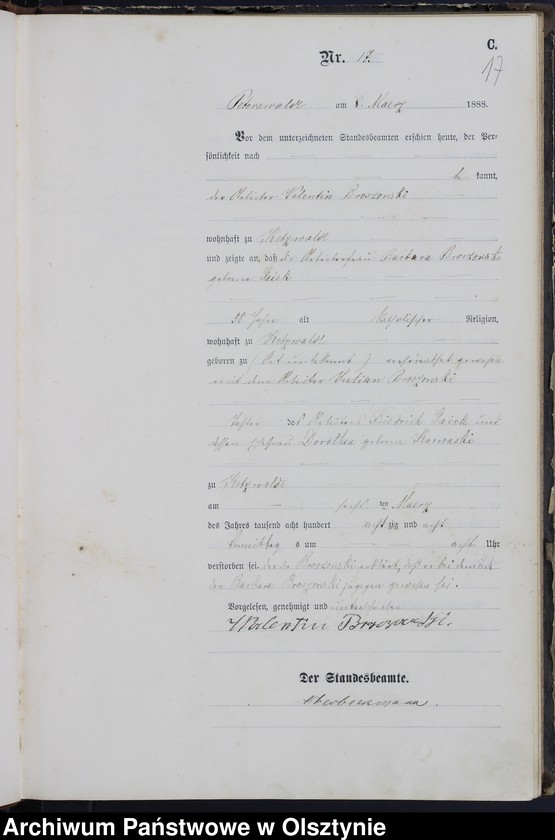 C.
Nr. 17.
17
Peterswalde am 8 Maerz 1888.
Vor dem unterzeichneten Standesbeamten erschien heute, der Per-
sönlichkeit nach
be kannt,
der Arbeiter Valentin Brozowski
wohnhaft zu
und zeigte an, daß die Arbeiterfrau Barbara Brozowski
geborne
Jahre alt katholischer Religion,
wohnhaft zu
geboren zu (Ort unbekannt) verheirathet gewesen
mit dem Arbeiter Julian Brozowski
Tochter des Arbeiters Friedrich und
dessen Ehefrau Dorothea geborne
zu
am sechs ten Maerz
des Jahres tausend acht hundert acht zig und acht
Vormittag s um acht Uhr
verstorben sei. der Brozowski erklärt, daß er bei dem Tode
der Barbara Brozowski zugegen gewesen sei.
Vorgelesen, genehmigt und unterschrieben
Valentin Brozowski.
Der Standesbeamte.
Archiwum Państwowe w Olsztynie